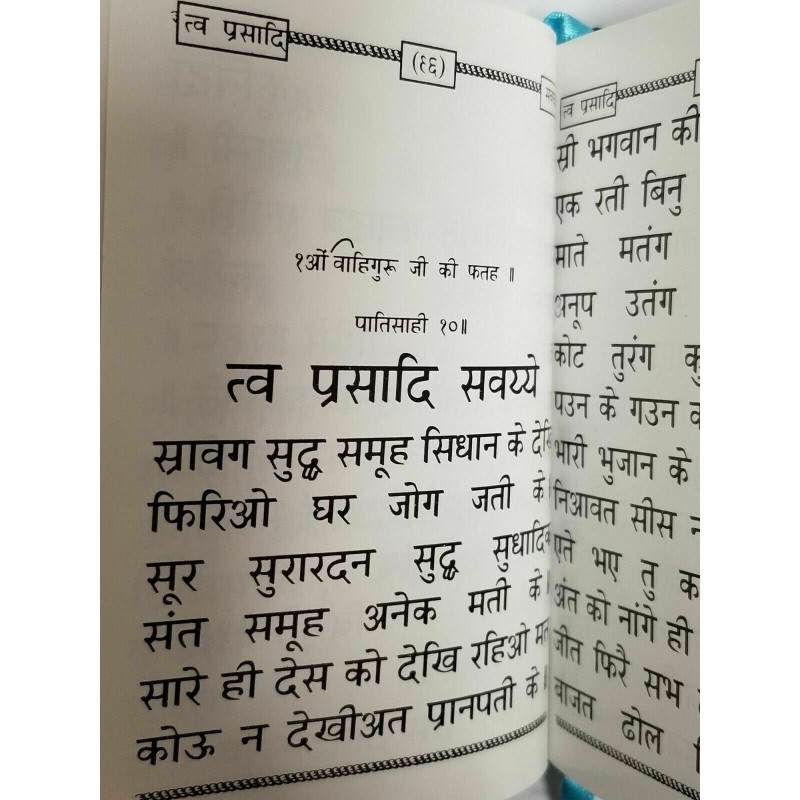 त्व प्रसादि
(९६)
१ओं वाहिगुरू जी की फतह ॥
पातिसाही १०॥
त्व प्रसादि सवय्ये
स्रावग सुद्ध समूह सिधान के
फिरिओ घर जोग जती के
सूर सुरारदन सुद्ध सुधादिक
संत समूह अनेक मती के
सारे ही देस को देखि रहिओ
कोऊ न देखीअत प्रानपती के
त्व प्रसादि
स्री भगवान की
एक रती बिनु
माते मतंग
अनूप उतंग
कोट तुरंग
पउन के गउन
भारी भुजान के
निआवत सीस
एते भए तु
अंत को नांगे ही
जीत फिरै सभ
बाजत ढोल